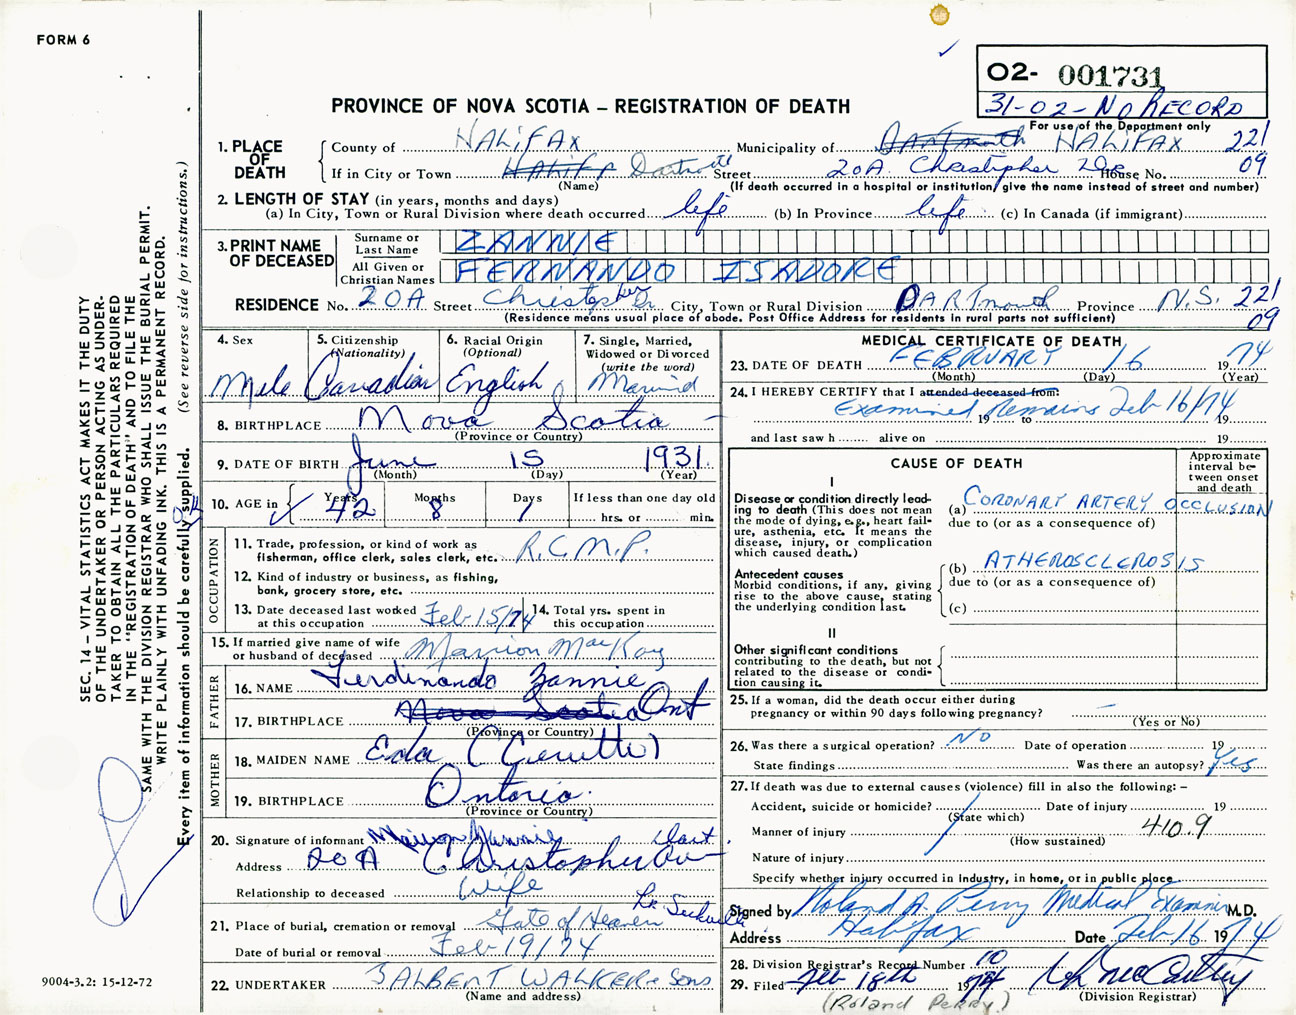 FORM 6
O2- 001731
31-02-NO RECORD
For use of the Department only
PROVINCE OF NOVA SCOTIA – REGISTRATION OF DEATH
1. PLACE OF DEATH
County of HALIFAX Municipality of Dartmouth HALIFAX 221
If in City or Town Halifa Dartmouth Street 20A Christopher House No. 09
(Name) (If death occurred in a hospital or institution, give the name instead of street and number)
2. LENGTH OF STAY (in years, months and days)
(a) In City, Town or Rural Division where death occurred life (b) In Province life (c) In Canada (if immigrant)
3. PRINT NAME OF DECEASED
Surname or Last Name ZANNIE
All Given or Christian Names FERNANDO ISADORE
RESIDENCE No. 20A Street Christopher Dr City, Town or Rural Division DARTmouth Province N.S. 221
(Residence means usual place of abode. Post Office Address for residents in rural parts not sufficient) 09
4. Sex Male
5. Citizenship (Nationality) Canadian
6. Racial Origin (Optional) English
7. Single, Married, Widowed or Divorced (write the word) Married
8. BIRTHPLACE Nova Scotia
(Province or Country)
9. DATE OF BIRTH June 15 1931
(Month) (Day) (Year)
10. AGE in Years 42 Months 8 Days 1 If less than one day old
hrs. or min.
OCCUPATION
11. Trade, profession, or kind of work as
fisherman, office clerk, sales clerk, etc. R.C.M.P.
12. Kind of industry or business, as fishing,
bank, grocery store, etc.
13. Date deceased last worked at this occupation Feb 15/74
14. Total yrs. spent in this occupation
15. If married give name of wife
or husband of deceased Marion MacKay
FATHER
16. NAME Ferdinando Zannie
17. BIRTHPLACE Nova Scotia Ont
(Province or Country)
MOTHER
18. MAIDEN NAME Eda (Cerutti)
19. BIRTHPLACE Ontario.
(Province or Country)
20. Signature of informant Marion Zannie Dart.
Address 20A Christopher Av
Relationship to deceased Wife
21. Place of burial, cremation or removal Gate of Heaven Lr. Sackville
Date of burial or removal Feb 19/74
22. UNDERTAKER J ALBERT WALKER + SONS
(Name and address)
MEDICAL CERTIFICATE OF DEATH
23. DATE OF DEATH FEBRUARY 16 1974
(Month) (Day) (Year)
24. I HEREBY CERTIFY that I attended deceased from:
Examined Remains Feb 16/74
19 to 19
and last saw h alive on 19
CAUSE OF DEATH
Approximate interval between onset and death
I
Disease or condition directly leading to death (This does not mean the mode of dying, e.g., heart failure, asthenia, etc. It means the disease, injury, or complication which caused death.)
(a) CORONARY ARTERY OCCLUSION
due to (or as a consequence of)
Antecedent causes
Morbid conditions, if any, giving rise to the above cause, stating the underlying condition last.
(b) ATHEROSCLEROSIS
due to (or as a consequence of)
(c)
II
Other significant conditions
contributing to the death, but not related to the disease or condition causing it.
25. If a woman, did the death occur either during
pregnancy or within 90 days following pregnancy? –
(Yes or No)
26. Was there a surgical operation? NO Date of operation 19
State findings Was there an autopsy? Yes
27. If death was due to external causes (violence) fill in also the following: –
Accident, suicide or homicide? Date of injury 19
(State which)
Manner of injury 410.9
(How sustained)
Nature of injury
Specify whether injury occurred in Industry, in home, or in public place
Signed by Roland A. Perry Medical Examiner M.D.
Address Halifax Date Feb 16 1974
28. Division Registrar's Record Number 10
29. Filed Feb 18th 1974
(Division Registrar)
(Roland Perry)
SEC. 14 – VITAL STATISTICS ACT MAKES IT THE DUTY
OF THE UNDERTAKER OR PERSON ACTING AS UNDER-
TAKER TO OBTAIN ALL THE PARTICULARS REQUIRED
IN THE "REGISTRATION OF DEATH" AND TO FILE THE
SAME WITH THE DIVISION REGISTRAR WHO SHALL ISSUE THE BURIAL PERMIT.
WRITE PLAINLY WITH UNFADING INK. THIS IS A PERMANENT RECORD.
Every item of information should be carefully supplied. (See reverse side for instructions.)
9004-3.2: 15-12-72